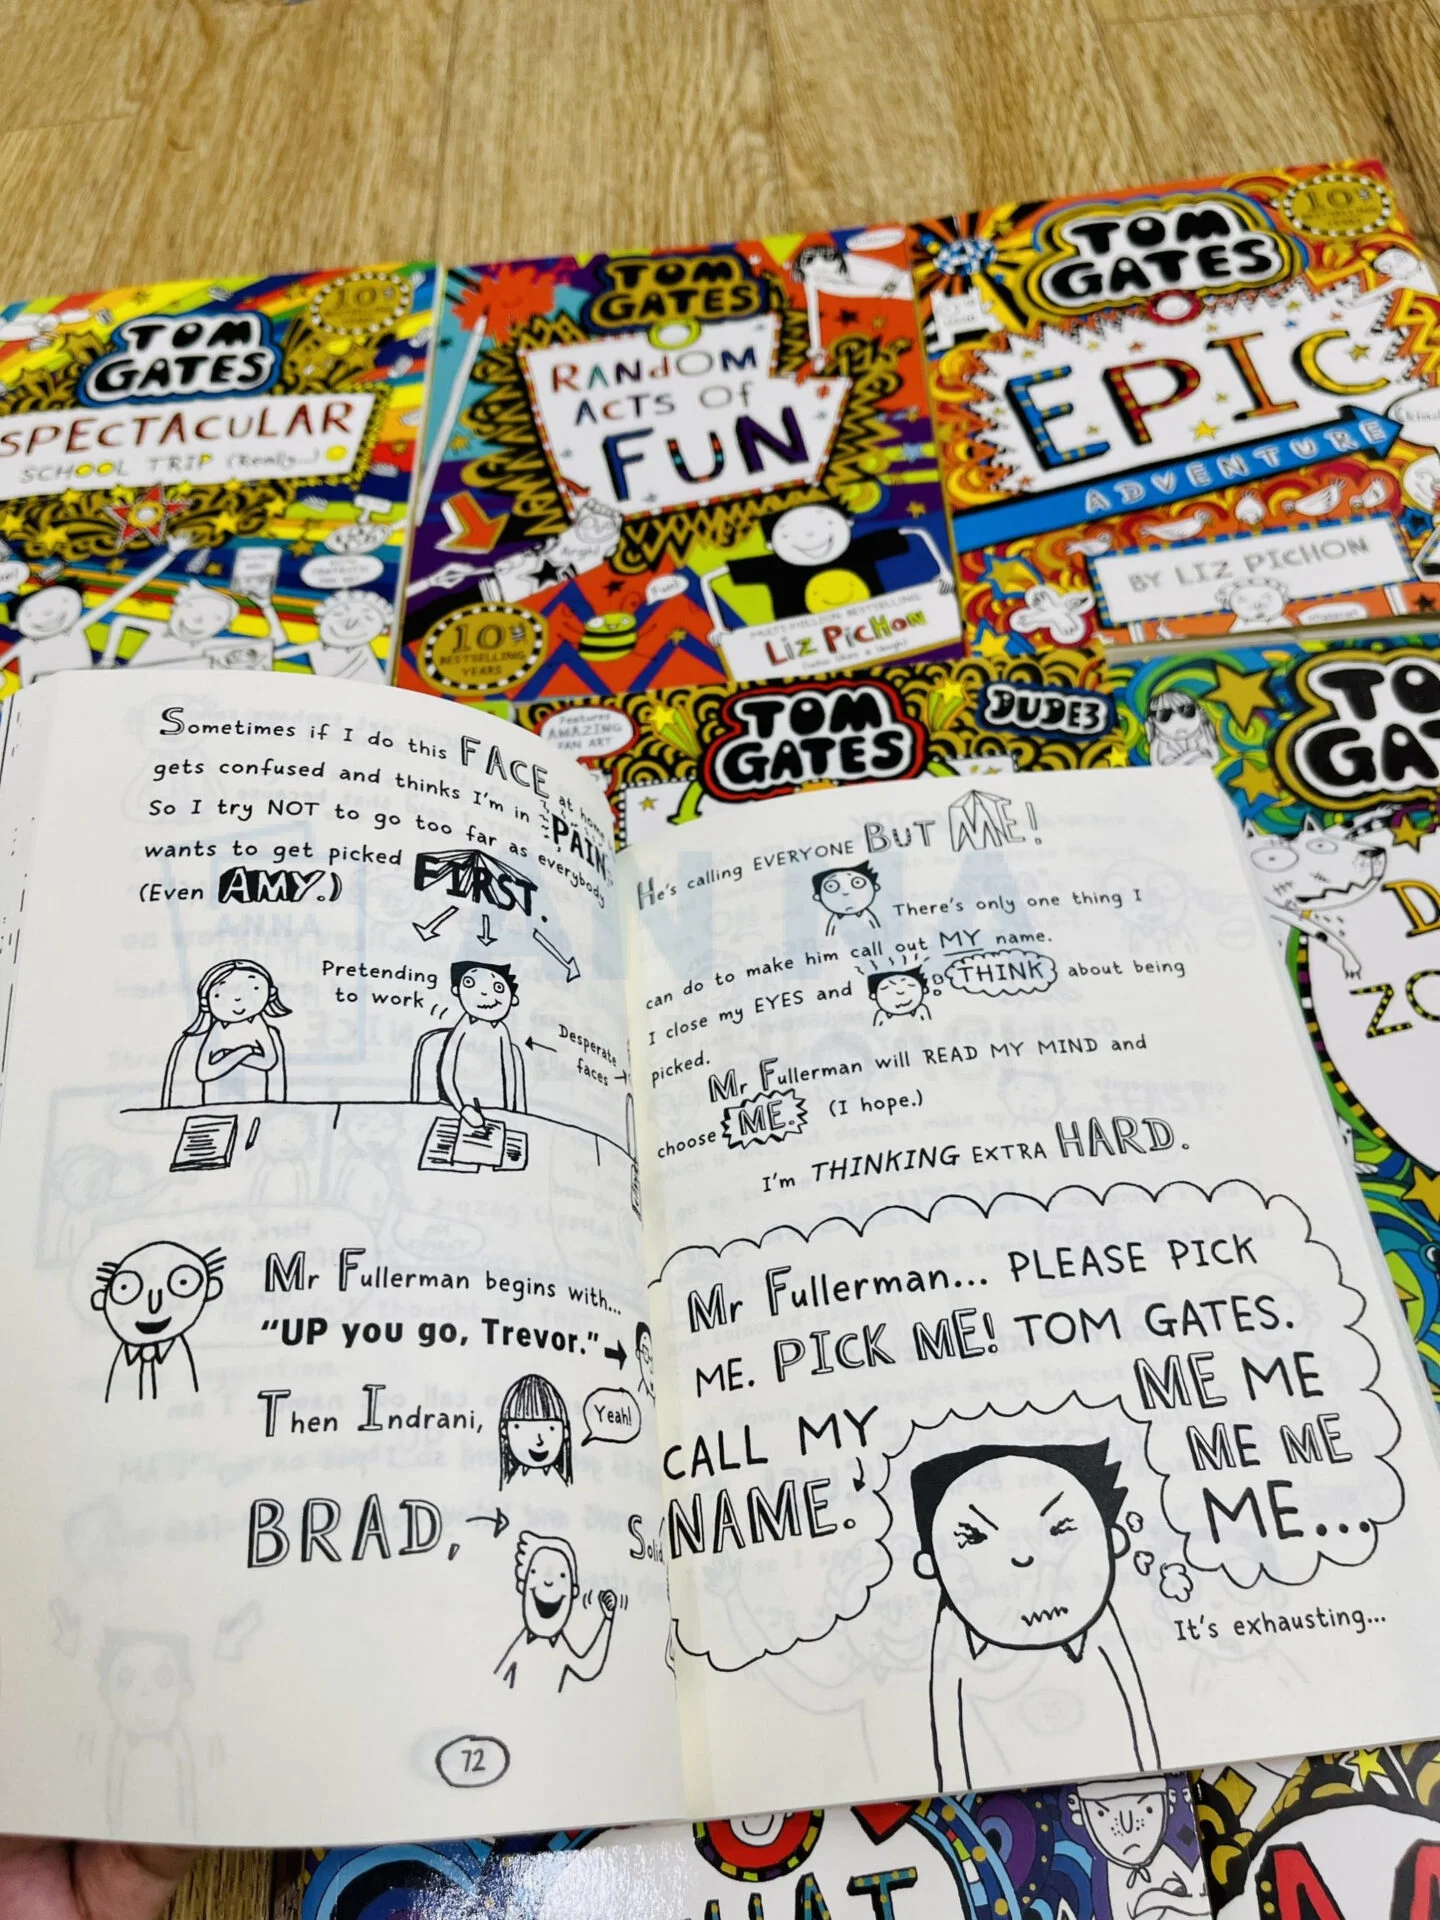 TOM
GATES
SPECTACULAR
SCHOOL TRIP (Really...)
TOM
GATES
RANdOM
ACTS Of
FUN
Fun!
10
BESTSELLING
YEARS
LIZ PICHON
(who likes a laugh)
10
TOM
GATES
EPIC
ADVENTURE
BY LIZ PICHON
Features
AMAZING
FAN ART
TOM
GATES
DUDE3
Sometimes if I do this FACE at home
gets confused and thinks I'm in PAIN.
So I try NOT to go too far as everybody
wants to get picked FIRST.
(Even AMY.)
Pretending
to work
Desperate
faces
Mr Fullerman begins with...
"UP you go, Trevor."
Then Indrani,
Yeah!
BRAD,
Solid,
72
He's calling EVERYONE BUT ME!
There's only one thing I
can do to make him call out MY name.
I close my EYES and THINK about being
picked.
Mr Fullerman will READ MY MIND and
choose ME. (I hope.)
I'm THINKING EXTRA HARD.
Mr Fullerman... PLEASE PICK
ME. PICK ME! TOM GATES.
ME ME
CALL MY
ME ME
NAME.
ME...
It's exhausting...